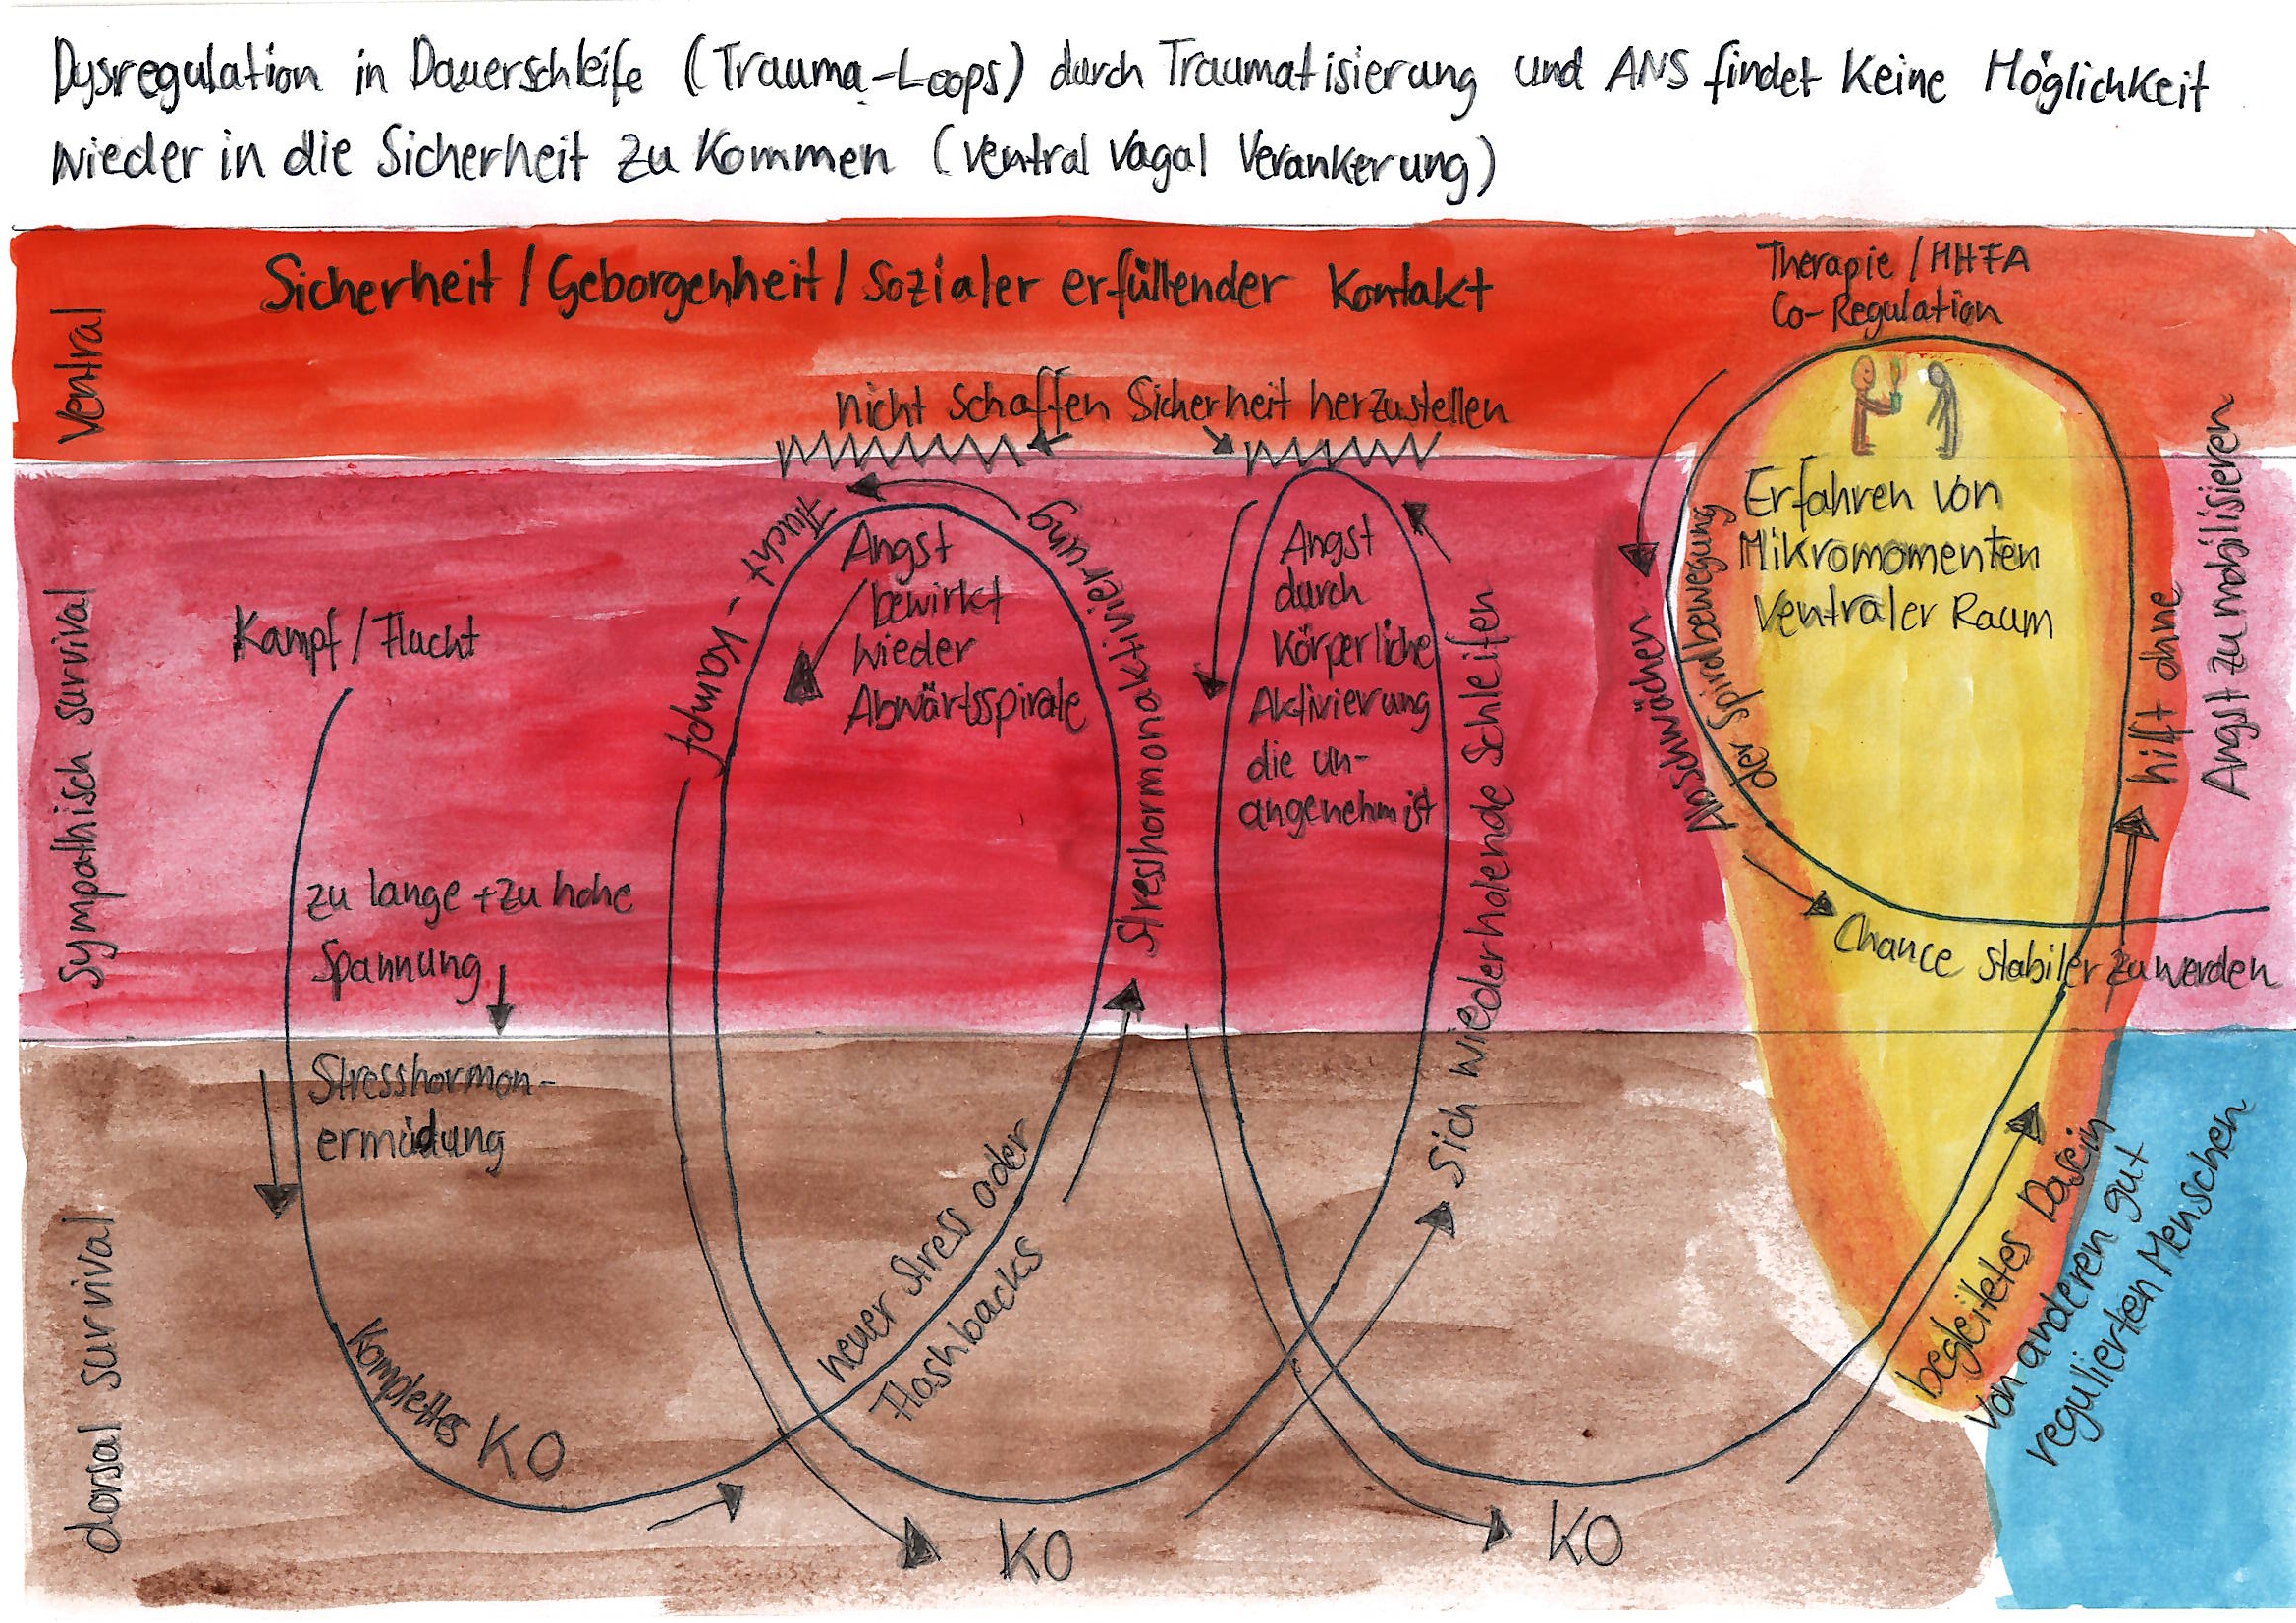 Dysregulation in Dauerschleife (Trauma-Loops) durch Traumatisierung und ANS findet keine Möglichkeit
wieder in die Sicherheit zu kommen (ventral vagal Verankerung)
Ventral
Sicherheit / Geborgenheit / Sozialer erfüllender Kontakt
Therapie / HHFA
Co-Regulation
nicht schaffen Sicherheit herzustellen
Sympathisch survival
Kampf / Flucht
zu lange + zu hohe
Spannung
Stresshormon-
ermüdung
dorsal survival
Komplettes KO
Flucht - Kampf
Angst
bewirkt
wieder
Abwärtsspirale
Stresshormonaktivierung
neuer Stress oder
Flashbacks
KO
Angst
durch
Körperliche
Aktivierung
die un-
angenehm ist
Sich wiederholende Schleifen
KO
Abschwächen
der Spiralbewegung
Erfahren von
Mikromomenten
Ventraler Raum
Chance stabiler zu werden
hilft ohne
Angst zu mobilisieren
begleitetes Dasein
von anderen gut
regulierten Menschen